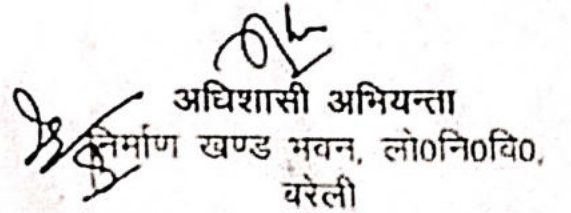 अधिशासी अभियन्ता
निर्माण खण्ड भवन, लो0नि0वि0,
बरेली